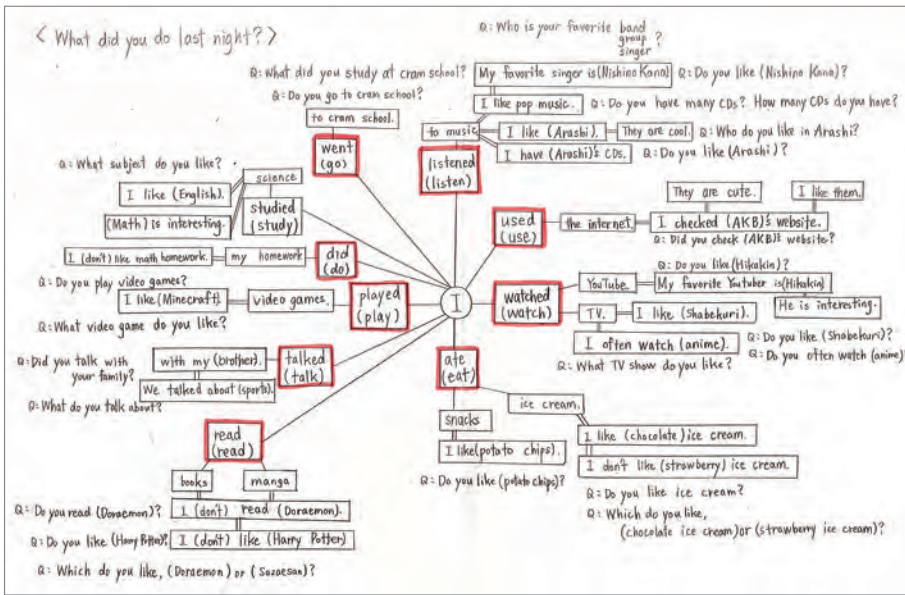 < What did you do last night? >
Q: Who is your favorite band group singer ?
Q: What did you study at cram school?
My favorite singer is (Nishino Kana)
Q: Do you like (Nishino Kana)?
Q: Do you go to cram school?
I like pop music.
Q: Do you have many CDs? How many CDs do you have?
to cram school.
to music
I like (Arashi).
They are cool.
Q: Who do you like in Arashi?
I have (Arashi)'s CDs.
Q: Do you like (Arashi)?
went
(go)
listened
(listen)
Q: What subject do you like?
science
I like (English).
(Math) is interesting.
studied
(study)
They are cute.
I like them.
used
(use)
the internet.
I checked (AKB)'s website.
Q: Did you check (AKB)'s website?
I (don't) like math homework.
my homework
did
(do)
Q: Do you play video games?
I like (Minecraft).
video games.
played
(play)
Q: What video game do you like?
I
watched
(watch)
Q: Do you like (Hikakin)?
YouTube.
My favorite Youtuber is (Hikakin)
He is interesting.
TV.
I like (Shabekuri).
Q: Do you like (Shabekuri)?
I often watch (anime).
Q: Do you often watch (anime)
Q: What TV show do you like?
Q: Did you talk with
your family?
with my (brother).
talked
(talk)
We talked about (sports).
Q: What do you talk about?
ate
(eat)
ice cream.
snacks
I like (potato chips).
Q: Do you like (potato chips)?
I like (chocolate) ice cream.
I don't like (strawberry) ice cream.
Q: Do you like ice cream?
Q: Which do you like,
(chocolate ice cream) or (strawberry ice cream)?
read
(read)
books
manga
Q: Do you read (Doraemon)?
I (don't) read (Doraemon).
Q: Do you like (Harry Potter)?
I (don't) like (Harry Potter)
Q: Which do you like, (Doraemon) or (Sazaesan)?